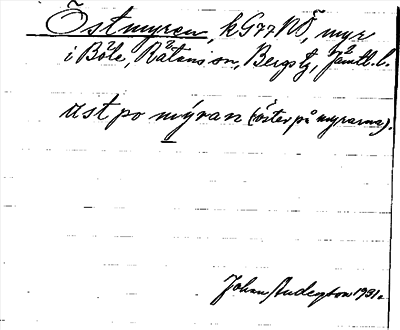 Östmyren, k G77 NÖ, myr
i Böle, Rätans sn, Bergs tg, Jämtl. l.
üst po mýran (öster på myrarna).
Johan Anderson 1931.